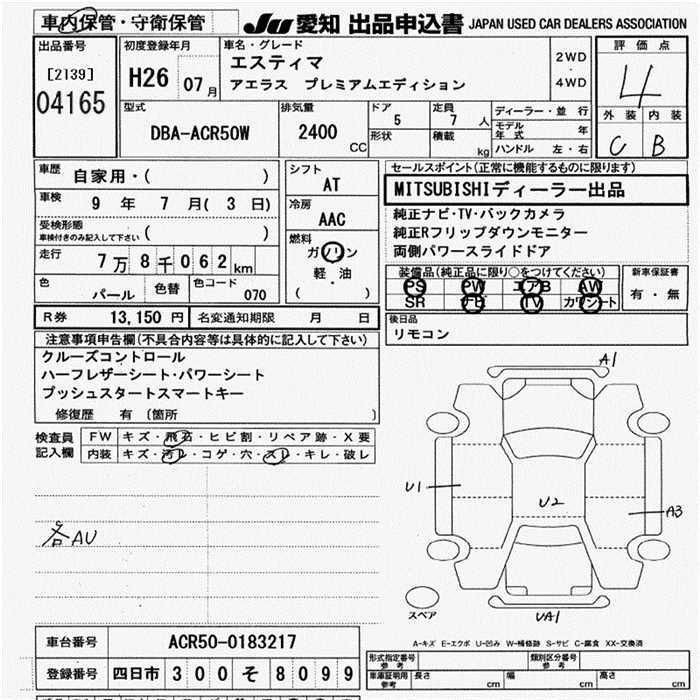 車内保管・守衛保管
JU 愛知 出品申込書 JAPAN USED CAR DEALERS ASSOCIATION
出品番号
[2139]
04165
初度登録年月
H26 07月
車名・グレード
エスティマ
アエラス プレミアムエディション
2WD
・
4WD
評価点
4
外装 内装
C B
型式
DBA-ACR50W
排気量
2400
CC
ドア
5
形状
定員
7 人
積載
kg
ディーラー・並行
モデル年式 年
ハンドル 左・右
車歴
自家用・( )
車検
9 年 7 月( 3 日)
受検形態
車検付きのみ記入して下さい ( )
走行
7万8千062km
色
パール
色替
色コード
070
シフト
AT
冷房
AAC
燃料
ガソリン
軽・油
( )
セールスポイント(正常に機能するものに限ります)
MITSUBISHIディーラー出品
純正ナビ・TV・バックカメラ
純正Rフリップダウンモニター
両側パワースライドドア
装備品(純正品に限り○をつけてください)
PS PW エアB AW
SR ナビ TV カワシート
新車保証書
有・無
R券 13,150 円 名変通知期限 月 日
後日品
リモコン
注意事項申告欄(不具合内容等は具体的に記入して下さい)
クルーズコントロール
ハーフレザーシート・パワーシート
プッシュスタートスマートキー
修復歴 有 〔箇所 〕
検査員記入欄
FW キズ・飛石・ヒビ割・リペア跡・X要
内装 キズ・汚レ・コゲ・穴・スレ・キレ・破レ
各AU
A1
U1
U2
A3
UA1
スペア
A-キズ E-エクボ U-凹み W-補修跡 S-サビ C-腐食 XX-交換済
車台番号 ACR50-0183217
登録番号 四日市 300 そ 8099
形式指定番号
参考
類別区分番号
参考
車庫証明用
参考
長さ cm 幅 cm 高さ cm